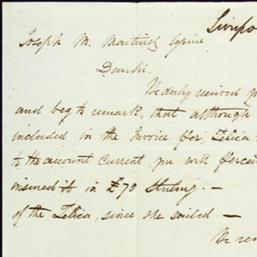 Liverpo
Joseph M. Martinez Esquire
We duly received y
and beg to remark, that although
included in the Invoice for Zelica
to the account current you will perceiv
insured it in £70 Sterling. —
of the Zelica, since she sailed. —
We rem